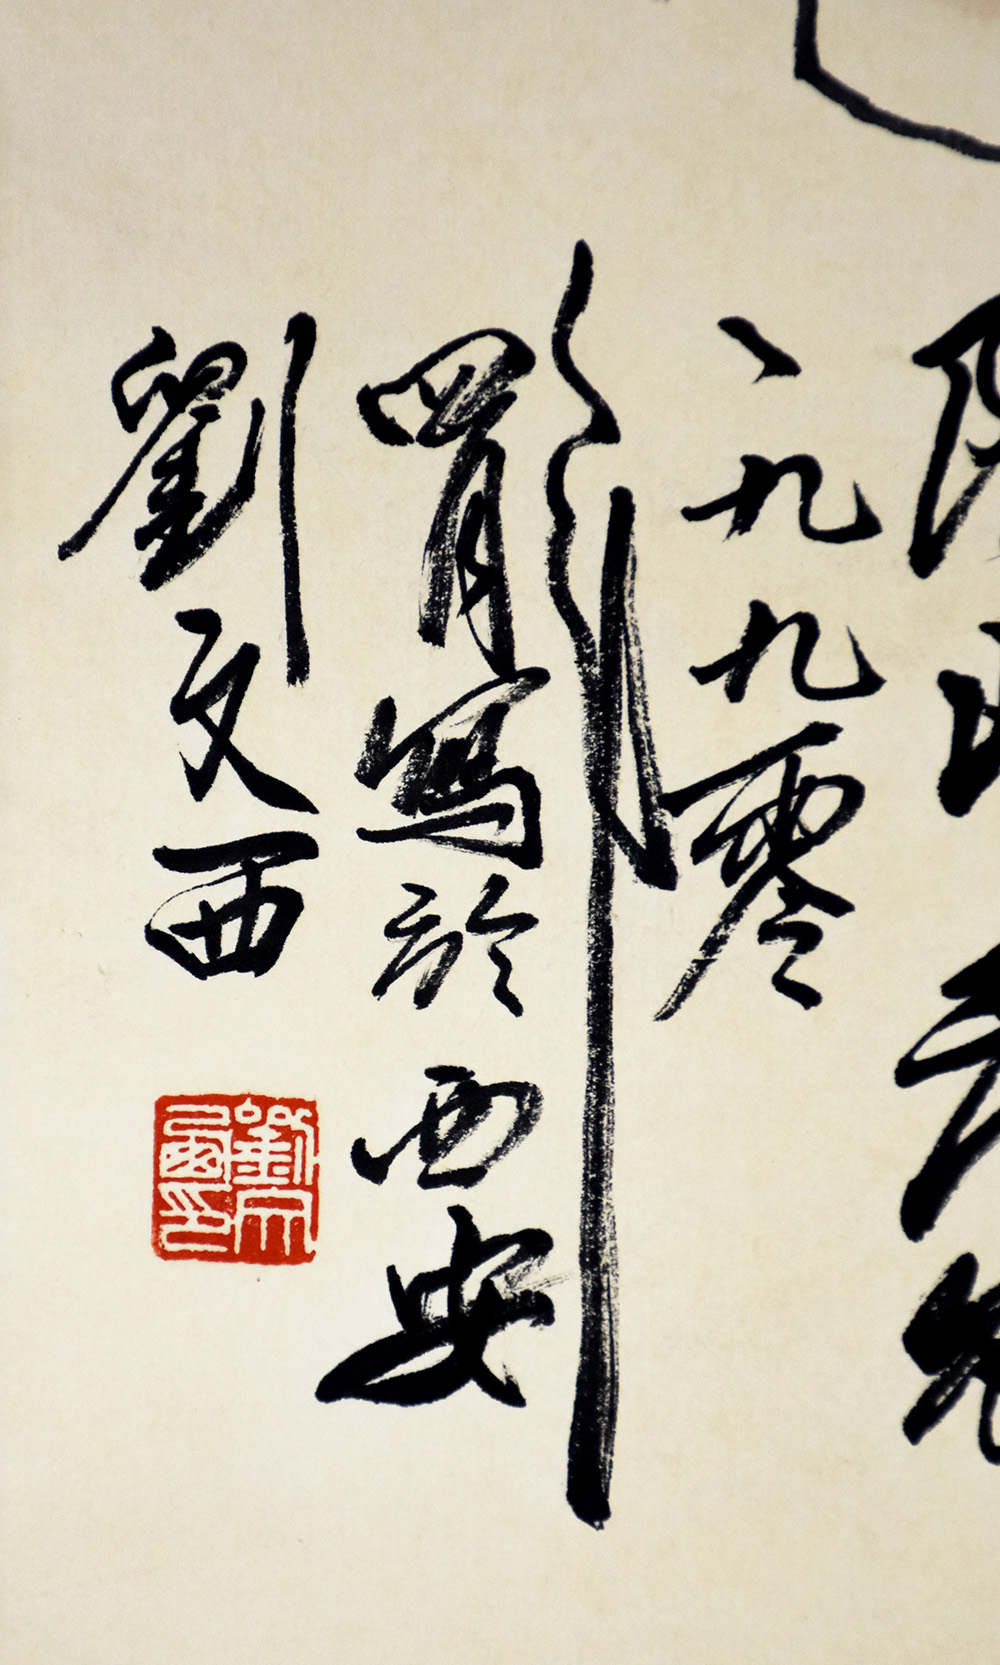 一九九零
年
四月寫於西安
劉文西
劉文西印